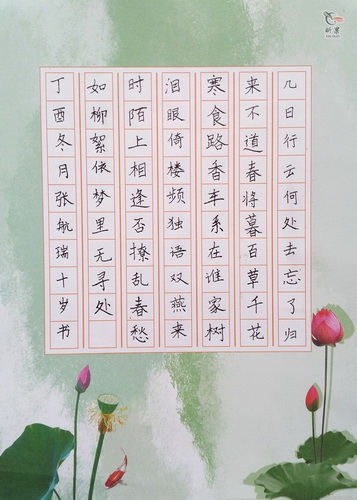 几日行云何处去忘了归
来不道春将暮百草千花
寒食路香车系在谁家树
泪眼倚楼频独语双燕来
时陌上相逢否撩乱春愁
如柳絮依梦里无寻处
丁酉冬月张航瑞十岁书